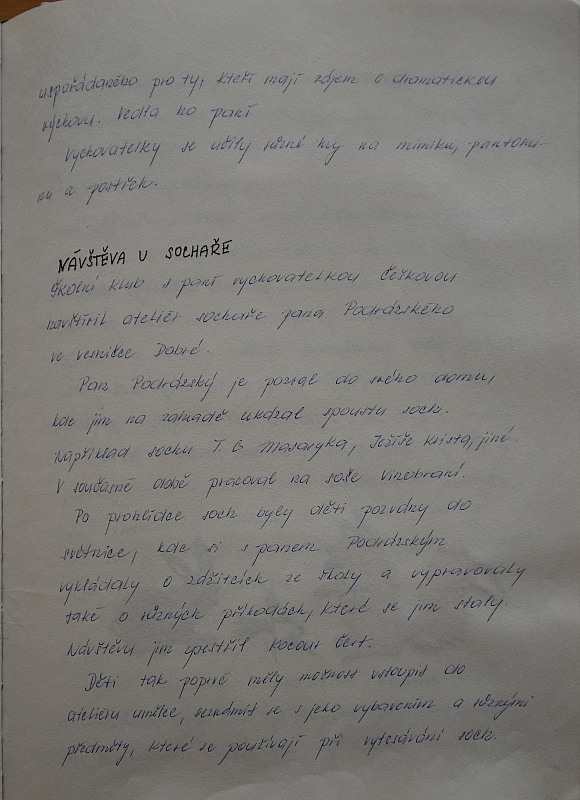 uspořádaného pro ty, kteří mají zájem o dramatickou
výchovu. Vedla ho paní
Vychovatelky se učily různé hry na mimiku, pantomi-
mu a postřeh.
NÁVŠTĚVA U SOCHAŘE
Školní klub s paní vychovatelkou Češkovou
navštívil ateliér sochaře pana Podrázského
ve vesničce Dobré.
Pan Podrázský je pozval do svého domu,
kde jim na zahradě ukázal spoustu soch.
Například sochu T. G Masaryka, Ježíše Krista, jiné.
V současné době pracoval na soše Vinobraní.
Po prohlídce soch byly děti pozvány do
světnice, kde si s panem Podrázským
vykládaly o zážitcích ze školy a vypravovaly
také o různých příhodách, které se jim staly.
Návštěvu jim zpestřil kocour Čert.
Děti tak poprvé měly možnost vstoupit do
ateliéru umělce, seznámit se s jeho vybavením a různými
předměty, které se používají při vytesávání soch.